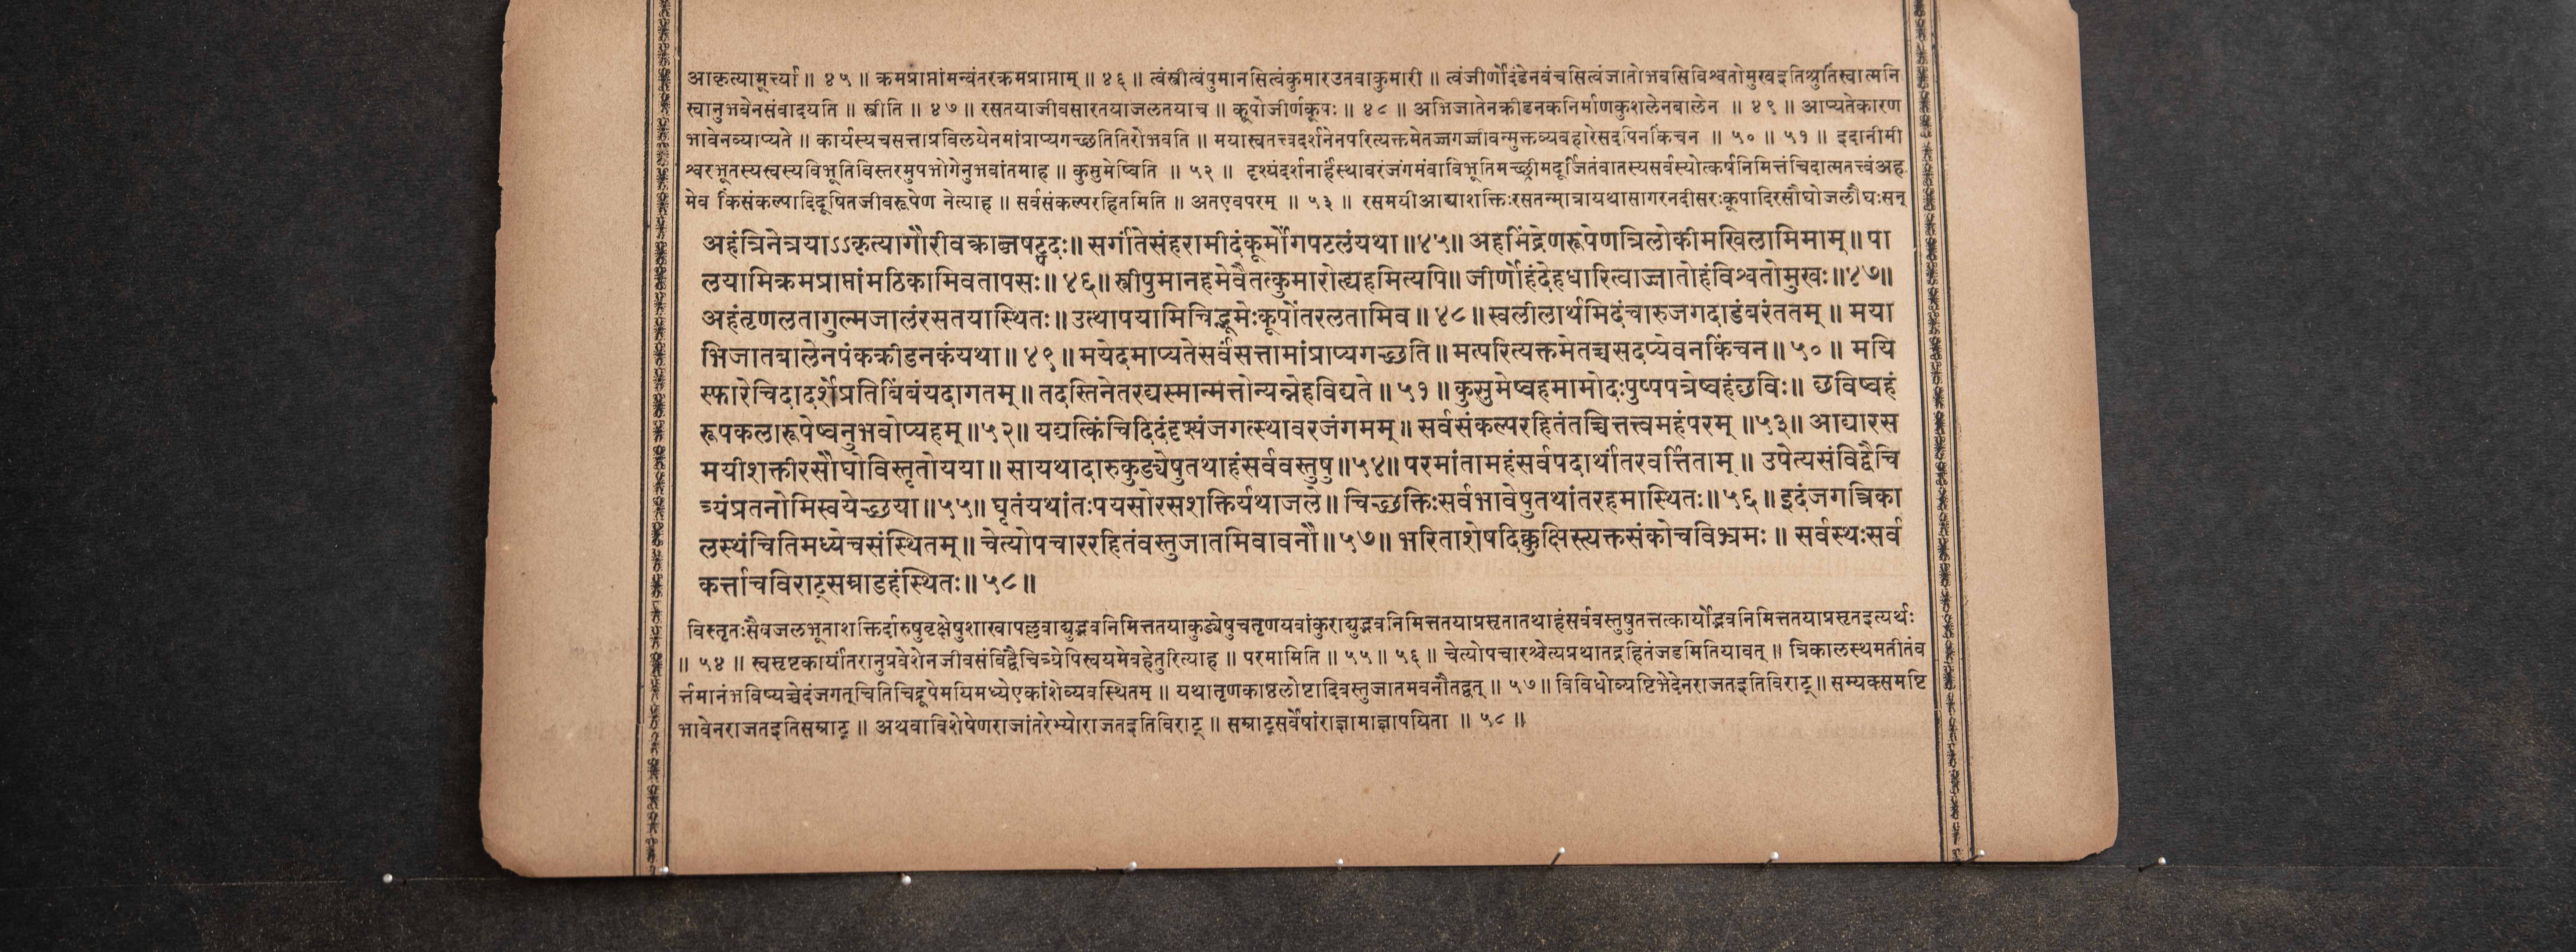 आकृत्यामूर्त्त्या ॥ ४५ ॥ क्रमप्राप्तांमन्वंतरक्रमप्राप्ताम् ॥ ४६ ॥ त्वंस्त्रीत्वंपुमानसित्वंकुमारउतवाकुमारी ॥ त्वंजीर्णोदंडेनवंचसित्वंजातोभवसिविश्वतोमुखइतिश्रुतिंस्वात्मनि
स्वानुभवेनसंवादयति ॥ स्त्रीति ॥ ४७ ॥ रसतयाजीवसारतयाजलतयाच ॥ कूपोजीर्णकूपः ॥ ४८ ॥ अभिजातेनक्रीडनकनिर्माणकुशलेनबालेन ॥ ४९ ॥ आप्यतेकारण
भावेनव्याप्यते ॥ कार्यस्यचसत्ताप्रविलयेनमांप्राप्यगच्छतितिरोभवति ॥ मयास्वतत्त्वदर्शनेनपरित्यक्तमेतज्जगज्जीवन्मुक्तव्यवहारेसदपिनकिंचन ॥ ५० ॥ ५१ ॥ इदानीमी
श्वरभूतस्यस्वस्यविभूतिविस्तरमुपभोगेनुभवांतमाह ॥ कुसुमेष्विति ॥ ५२ ॥ दृश्यंदर्शनार्हंस्थावरंजंगमंवाविभूतिमच्छ्रीमदूर्जितंवातस्यसर्वस्योत्कर्षनिमित्तंचिदात्मतत्त्वंअह
मेव किंसंकल्पादिदूषितजीवरूपेण नेत्याह ॥ सर्वसंकल्परहितमिति ॥ अतएवपरम् ॥ ५३ ॥ रसमयीआद्याशक्तिःरसतन्मात्रायथासागरनदीसरःकूपादिरसौघोजलौघःसन्
अहंत्रिनेत्रयाऽऽकृत्यागौरीवक्त्राब्जषट्पदः॥ सर्गांतेसंहरामीदंकूर्मोंगपटलंयथा॥४५॥ अहमिंद्रेणरूपेणत्रिलोकीमखिलामिमाम्॥ पा
लयामिक्रमप्राप्तांमठिकामिवतापसः॥ ४६॥ स्त्रीपुमानहमेवैतत्कुमारोह्यहमित्यपि॥ जीर्णोहंदेहधारित्वाज्जातोहंविश्वतोमुखः॥४७॥
अहंतृणलतागुल्मजालंरसतयास्थितः॥ उत्थापयामिचिद्भूमेःकूपोंतरलतामिव॥ ४८॥ स्वलीलार्थमिदंचारुजगदाडंबरंततम्॥ मया
भिजातबालेनपंकक्रीडनकंयथा॥ ४९॥ मयेदमाप्यतेसर्वंसत्तामांप्राप्यगच्छति॥ मत्परित्यक्तमेतच्चसदप्येवनकिंचन॥ ५०॥ मयि
स्फारेचिदादर्शेप्रतिबिंबंयदागतम्॥ तदस्तिनेतरद्यस्मान्मत्तोन्यन्नेहविद्यते॥ ५१॥ कुसुमेष्वहमामोदःपुष्पपत्रेष्वहंछविः॥ छविष्वहं
रूपकलारूपेष्वनुभवोप्यहम्॥५२॥ यद्यत्किंचिदिदंदृश्यंजगत्स्थावरजंगमम्॥ सर्वसंकल्परहितंतच्चित्तत्त्वमहंपरम् ॥५३॥ आद्यारस
मयीशक्तीरसौघोविस्तृतोयया॥ सायथादारुकुड्येषुतथाहंसर्ववस्तुषु॥५४॥ परमांतामहंसर्वपदार्थांतरवर्त्तिताम्॥ उपेत्यसंविद्वैचि
त्र्यंप्रतनोमिस्वयेच्छया॥५५॥ घृतंयथांतःपयसोरसशक्तिर्यथाजले॥ चिच्छक्तिःसर्वभावेषुतथांतरहमास्थितः॥५६॥ इदंजगत्त्रिका
लस्थंचितिमध्येचसंस्थितम्॥ चेत्योपचाररहितंवस्तुजातमिवावनौ॥५७॥ भरिताशेषदिक्कुक्षिस्त्यक्तसंकोचविभ्रमः॥ सर्वस्थःसर्व
कर्त्ताचविराट्सम्राडहंस्थितः॥ ५८॥
विस्तृतःसैवजलभूताशक्तिर्दारुषुवृक्षेषुशाखापल्लवाद्युद्भवनिमित्ततयाकुड्येषुचतृणयवांकुराद्युद्भवनिमित्ततयाप्रसृतातथाहंसर्ववस्तुषुतत्तत्कार्योद्भवनिमित्ततयाप्रसृतइत्यर्थः
॥ ५४ ॥ स्वसृष्टकार्यांतरानुप्रवेशेनजीवसंविद्वैचित्र्येपिस्वयमेवहेतुरित्याह ॥ परमामिति ॥ ५५ ॥ ५६ ॥ चेत्योपचारश्चेत्यप्रथातद्रहितंजडमितियावत् ॥ त्रिकालस्थमतीतंव
र्त्तमानंभविष्यच्चेदंजगत्चितिचिद्रूपेमयिमध्येएकांशेव्यवस्थितम् ॥ यथातृणकाष्ठलोष्टादिवस्तुजातमवनौतद्वत् ॥ ५७॥ विविधोव्यष्टिभेदेनराजतइतिविराट् ॥ सम्यक्समष्टि
भावेनराजतइतिसम्राट् ॥ अथवाविशेषेणराजांतरेभ्योराजतइतिविराट् ॥ सम्राट्सर्वेषांराज्ञामाज्ञापयिता ॥ ५८ ॥